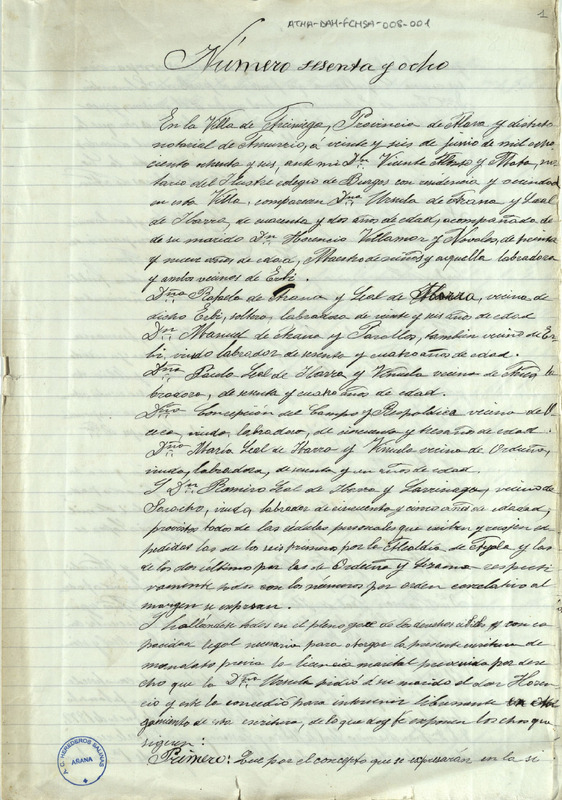 ATHA-DAH-FCHSA-008-001
1
Número sesenta y ocho
En la Villa de Arciniega, Provincia de Alava y distrito
notarial de Amurrio, á veinte y seis de junio de mil ocho
ciento ochenta y seis, ante mi Dn. Vicente y Mata, no
tario del Ilustre colegio de Burgos con residencia y vecindad
en esta Villa, comparecen Dña Ursula de Arana y Leal
de Ibarra, de cuarenta y dos años de edad, acompañada de
de su marido Dn. Florencio Villamor y Novales, de treinta
y nueve años de edad, Maestro de niños y aquella labradora
y ambos vecinos de Erbi.
Dña Rafaela de Arana y Leal de Ibarra, vecina de
dicho Erbi, soltera, labradora de veinte y seis años de edad
Dn. Manuel de Arana y tambien vecino de Er
bi, viudo labrador de sesenta y cuatro años de edad.
Dña Leal de Ibarra y Viñuela vecina de la
bradora, de sesenta y cuatro años de edad.
Dña Concepcion del Campo y vecina de
viuda, labradora, de cincuenta y años de edad.
Dña María Leal de Ibarra y Viñuela vecina de Orduña,
viuda, labradora, de sesenta y un años de edad.
Y Dn. Ramiro Leal de Ibarra y Larrinaga, vecino de
viudo, labrador de cincuenta y cinco años de edad,
provistos todos de las cédulas personales que exiben y recojen es
pedidas las de los seis primeros por la Alcaldia de Ayala y las
de los dos últimos por las de Orduña y Lezama respecti
vamente todas con los números por orden correlativo al
margen se expresan.
Y hallándose todos en el pleno goce de los derechos civiles, y con ca
pacidad legal necesaria para otorgar la presente escritura de
mandato previa la licencia marital prevenida por dere
cho que la Dña Ursula pidió á su marido el don Floren
cio y este la concedió para intervenir libremente en el otor
gamiento de esta escritura, de lo que doy fe exponen los choz que
siguen:
Primero: Que por el concepto que se expresarán en la si
A.C. HEREDEROS SALINAS
ARANA